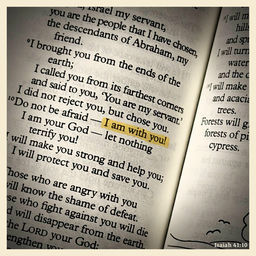 Israel my servant,
you are the people that I have chosen,
the descendants of Abraham, my
friend.
I brought you from the ends of the
earth;
I called you from its farthest corners
and said to you, 'You are my servant.'
I did not reject you, but chose you.
10 Do not be afraid — I am with you!
I am your God — let nothing
terrify you!
I will make you strong and help you;
I will protect you and save you.
Those who are angry with you
will know the shame of defeat.
who fight against you will die
will disappear from the earth
the LORD your God;
strengthen you
"I will m
hills
and sp
I will turn
water
and the
"I will make
and acacia
trees.
Forests will g
forests of pi
cypress.
Isaiah 41:10